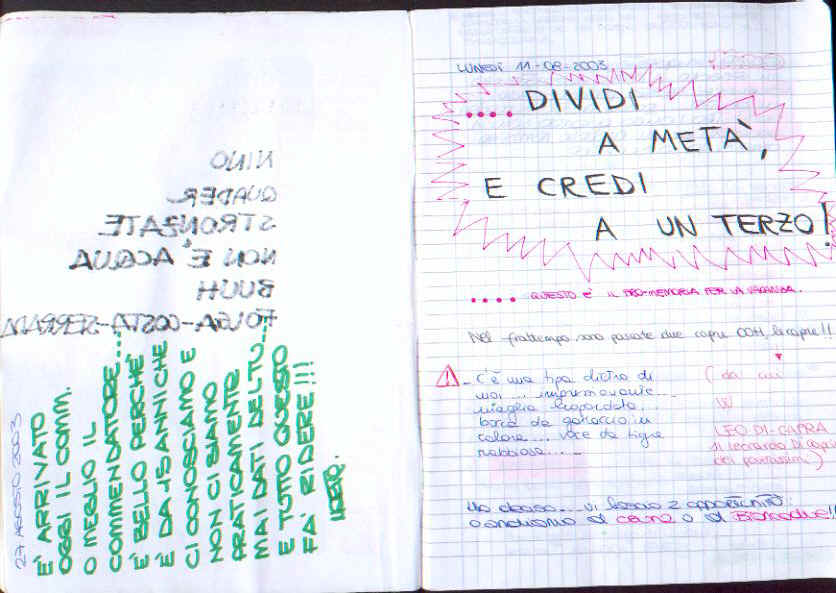 QUADER
STRONZATE
NON È ACQUA
BUUH
27 AGOSTO 2003
È ARRIVATO
OGGI IL COMM.
O MEGLIO IL
COMMENDATORE...
È BELLO PERCHÉ
È DA 15 ANNI CHE
CI CONOSCIAMO E
NON CI SIAMO
PRATICAMENTE
MAI DATI DEL TU...
E TUTTO QUESTO
FA' RIDERE!!!
LUNEDÌ 11-08-2003
.... DIVIDI
A METÀ,
E CREDI
A UN TERZO!
.... QUESTO E' IL PRO-MEMORIA PER LA VACANZA.
Nel frattempo sono passate due capre OOH, le capre!!
C'è una tipa dietro di
noi ... impressionante
maglia leopardata,
borsa da
colore .... voce da tigre
rabbiosa ....
(da cui
W
LEO DI-CAPRA
il leonardo Di Caprio
dei
Ho deciso.... vi lascio 2 opportunità:
o andiamo al cairo o al